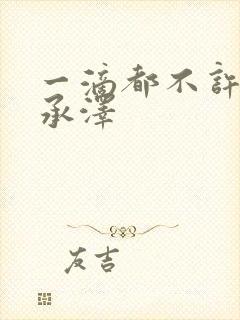 一滴都不許
承澤
友吉